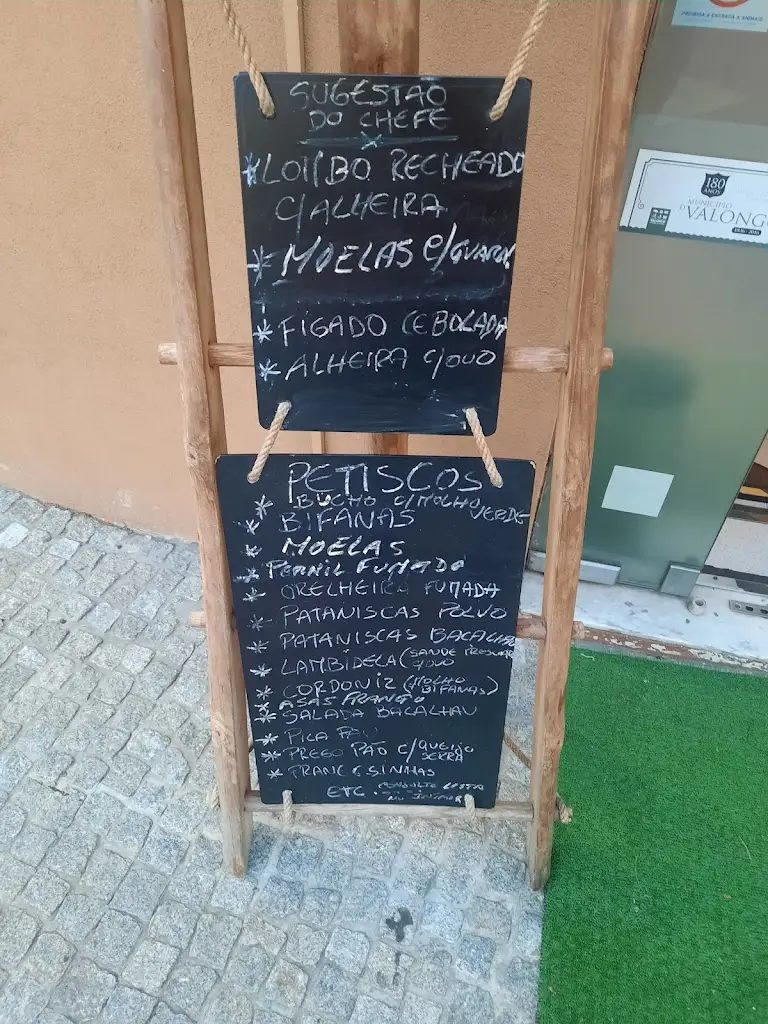 SUGESTAO
DO CHEFE
* LOMBO RECHEADO
C/ALHEIRA
* MOELAS C/GUARN
* FIGADO CEBOLADA
* ALHEIRA C/OVO
PETISCOS
* BUCHO C/MOLHO VERDE
* BIFANAS
* MOELAS
* PERNIL FUMADO
* ORELHEIRA FUMADA
* PATANISCAS POLVO
* PATANISCAS BACALHAU
* LAMBIDELA (SANDE PRESUNTO
C/OVO
* CORDONIZ (MOLHO
BIFANAS)
* ASAS FRANGO
* SALADA BACALHAU
* PICA PAU
* PREGO PÃO C/QUEIJO
SERRA
* FRANCESINHAS
ETC. CONSULTE LISTA
NO INTERIOR
PROIBIDA A ENTRADA A ANIMAIS
180
ANOS
MUNICÍPIO
D VALONGO
1836-2016